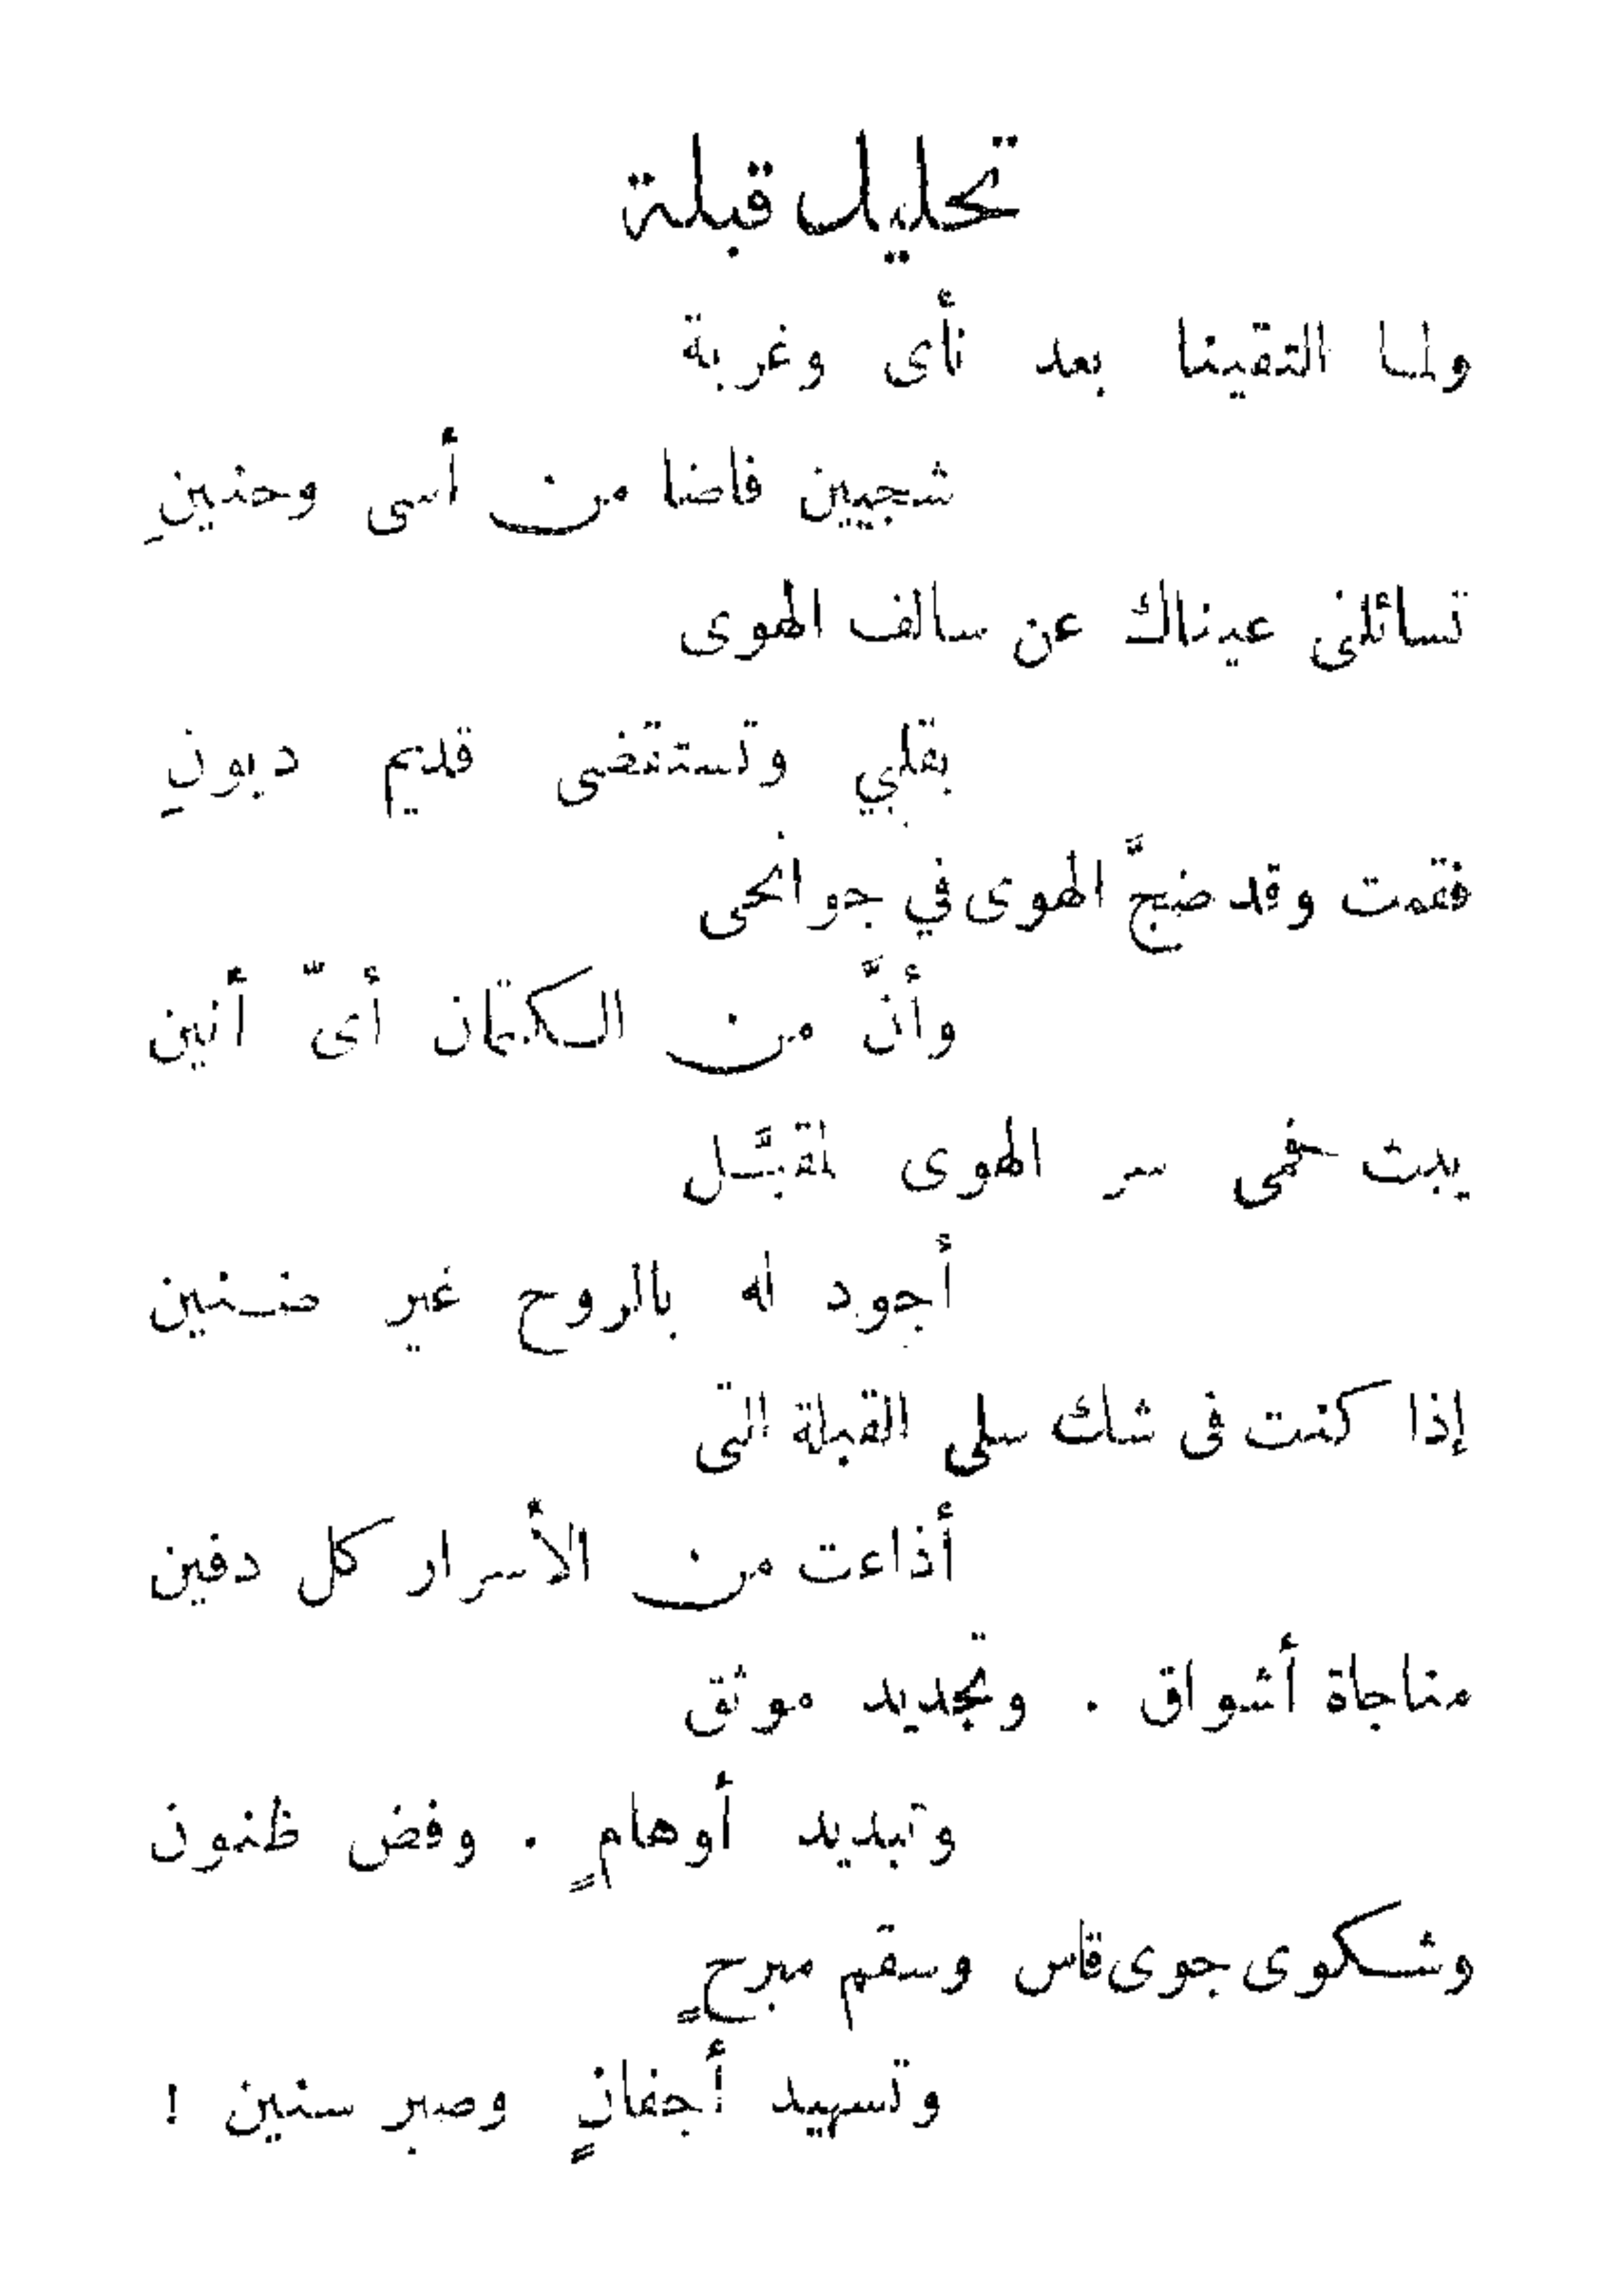 تحليل قبلة
ولما التقينا بعد نأى وغربة
شجيين فاضا من أسى وحنينِ
تسائلنى عيناك عن سالف الهوى
بقلبي وتستقضى قديم ديونِ
فقمت وقد ضجَّ الهوى في جوانحى
وأنَّ من الكتمان أىّ أنين
يبث خفى سر الهوى لمقبَّل
أجود له بالروح غير ضنين
إذا كنت فى شك سلى القبلة التى
أذاعت من الأسرار كل دفين
مناجاة أشواق . وتجديد موثق
وتبديد أوهامٍ . وفض ظنون
وشكوى جوى قاس وسقم مبرحٍ
وتسهيد أجفانٍ وصبر سنين !